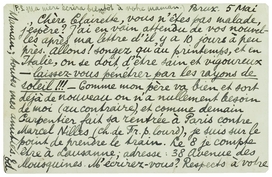 P.S. ma mère écrira bientôt à votre maman. Brux. 5 Mai
Chère Clairette, vous n'êtes pas malade,
j'espère! J'ai en vain attendu de vos nouvel-
les après ma lettre d'il y a 10 jours à peu
près. allons! songez qu'au printemps, et en
Italie, on se doit d'être sain et vigoureux
— laissez-vous pénétrer par les rayons de
soleil!!! — Comme mon père va bien et sort
déjà de nouveau on n'a nullement besoin
de moi (au contraire), et comme demain
Carpentier fait sa rentrée à Paris contre
Marcel Nilles (ch. de Fr. p. lourd), je suis sur le
point de prendre le train. Le 8 je compte
être à Lausanne; adresse: 38 Avenue des
Mousquines. M'écrirez-vous? Respects à votre
Maman,